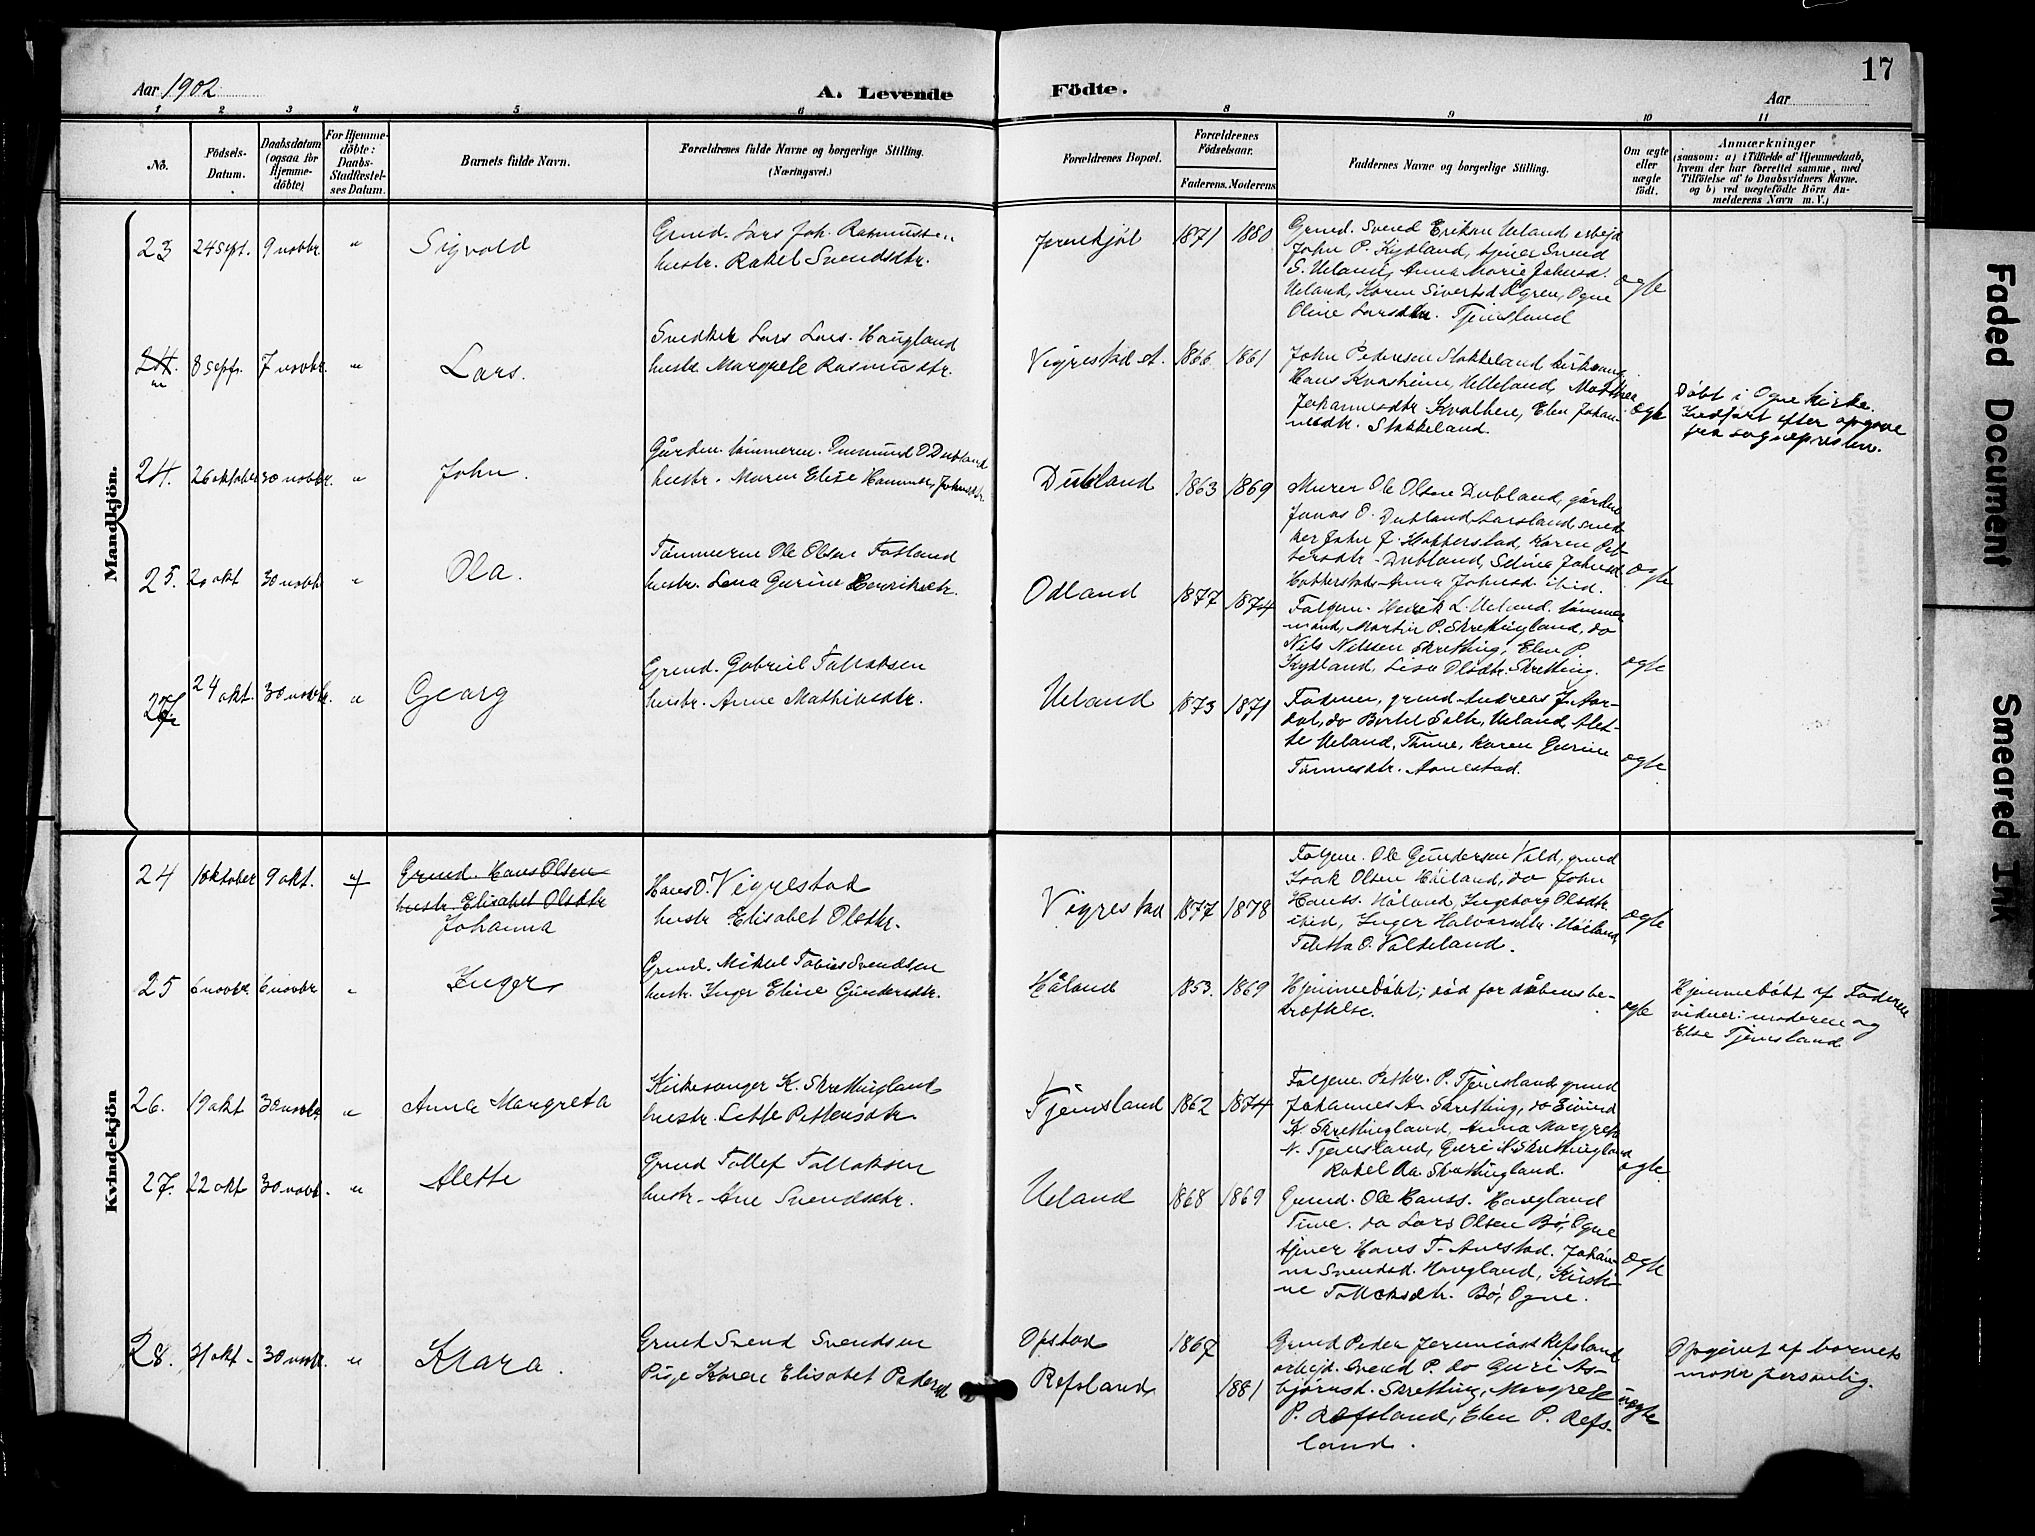 17
Aar 1902
A. Levende
Födte.
Aar
1 2 3 4 5 6 8 9 10 11
No.
Födsels-Datum.
Daabsdatum (ogsaa for Hjemme-döbte)
For Hjemme-döbte: Daabs-Stadfæstelses Datum.
Barnets fulde Navn.
Forældrenes fulde Navne og borgerlige Stilling. (Næringsvei.)
Forældrenes Bopæl.
Forældrenes Födselsaar.
Faderens. Moderens
Faddernes Navne og borgerlige Stilling.
Om ægte eller uægte födt.
Anmærkninger
(saasom: a) i Tilfælde af Hjemmedaab,
hvem der har forrettet samme, med
Tilföielse af to Daabsvidners Navne,
og b) ved uægtefödte Börn An-
melderens Navn m. V.)
Mandkjön.
23 24 sept. 9 novbr. " Sigvald
Grund. Lars Joh. Rasmussen
hustr. Rakel Svendsdtr.
1871 1880
Grund. Svend Eriksen Ueland arbejd
John P. Kydland, tjener Svend
S. Ueland, Anna Marie Johnsd.
Ueland, Karen Sivertsd Ogren, Ogne
Oline Larsdtr. Tjemsland
ægte
24. 8 sept. 7 novbr. " Lars.
Snedker Lars Lars. Haugland
hustr. Margrete Rasmusdtr.
Vigrestad st. 1866 1861
John Pedersen Stokkeland,
Hans Kvasheim, Helleland,
Johannesdtr Kvalhein, Elen Johan-
nesdtr. Stokkeland.
ægte
Døbt i Ogne kirke.
Indført efter opgave
fra sognepresten.
24. 26 oktober 30 novbr. " John.
hustr. Maren Elise
Dubland 1863 1869
Murer Ole Olsen Dubland, gårdm
Jonas O. Dubland
ker John J. Hobberstad, Karen Pet-
tersdtr. Dubland, Selina Johnsd
Hobberstad Anna Johnsd. ibid.
ægte
25. 20 okt 30 novbr " Ola.
Tømmerm Ole Olsen Fotland
hustr. Lena Gurine Henriksdtr.
Odland 1877 1874
Folgem. Henrik L. Ueland. tømmer
mand, Martin P. Skrettingland, do
Nils Nilsen Skretting, Elen P.
Kydland, Lisa Olsdtr. Skretting.
ægte
24 okt. 30 novbr. " Georg
Grund. Gabriel Tollaksen
hustr. Anne Mathiasdtr.
Ueland 1873 1871
Faderen, grund Andreas J. Aar-
dal, do Bertel Salte, Ueland Alet-
te Ueland, Thime, Karen Gurine
Tønnesdtr. Aanestad.
ægte
Kvindekjön
24 1 oktober 9 okt. "
Grund. Hans Olsen
hustr. Elisabet Olsdtr
Johanna
Hans O. Vigrestad
hustr Elisabet Olsdtr.
Vigrestad 1877 1878
Folgem. Ole Gundersen Vold, grund
Isak Olsen Høiland, do John
Hanss. Høland, Ingeborg Olsdtr
ibid, Inger Halvorsdtr. Høiland,
O. Valseland.
ægte
25 6 novbr. 6 novbr " Inger
Grund. Mikal Tobias Svendsen
hustr. Inger Eline Gundersdtr.
Håland 1853. 1869
Hjemmedøbt; død før dåbens be-
kræftelse.
ægte
Hjemmedøbt af Faderen
vidner: moderen og
Else Tjemsland
26. 19 okt 30 novbr " Anna Margreta
Kirkesanger K. Skrettingland
hustr. Lette Pettersdtr
Tjemsland 1862 1874
Folgem. Petter P. Tjemsland, grund
Johannes A. Skretting, do Eivind
K. Skrettingland, Anna Margrete
N. Tjemsland, Guri K Skrettingland
Rakel Aa. Skrettingland.
ægte
27. 22 okt 30 novbr. " Alette
Grund Tollef Tollaksen
hustr. Ane Svendsdtr.
Ueland 1868 1869
Grund. Ole Hanss. Haugland
Time. do Lars Olsen Bø, Ogne
tjener Hans T. Anestad. Johan-
na Svendsd. Haugland, Kirsti-
ne Tollaksdtr. Bø, Ogne.
ægte
28. 31 okt. 30 novbr. " Klara.
Grund Svend Svendsen
Pige Karen Elisabet Pedersd
Opstad 1867
Refsland 1881
Grund Peder Jeremias Refsland
arbejd. Svend P. do Guri As-
bjørnsd. Skretting, Margrete
P. Refsland, Elen P. Refs-
land.
uægte
Opgivet af barnets
moder personlig.
Faded Document
Smeared Ink